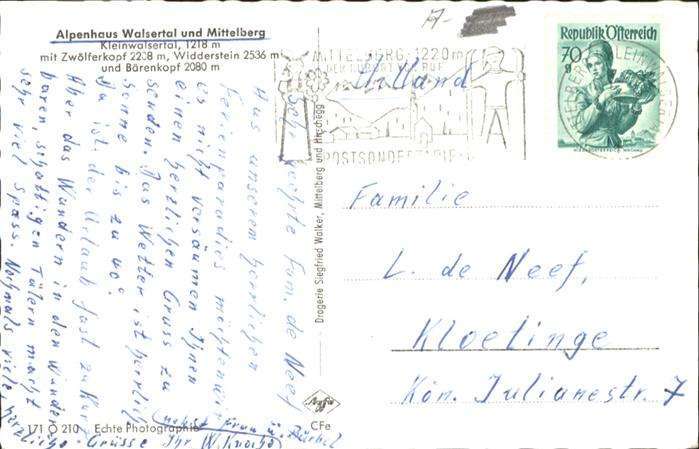 Alpenhaus Walsertal und Mittelberg
Kleinwalsertal, 1218 m
mit Zwölferkopf 2228 m, Widderstein 2536 m
und Bärenkopf 2080 m
A-
MITTELBERG·1220m
DER KURORT RUF
POSTSONDERTARIF
Republik Österreich
70
g
Holland
Familie
L. de Neef,
Kloetinge
Kon. Julianestr. 7
Drogerie Siegfried Walker, Mittelberg und Hirschegg
Sehr geehrte Fam. de Neef
Aus unserem herrlichen
Ferienparadies möchten wir
es nicht versäumen Ihnen
einen herzlichen Gruss zu
senden. Das Wetter ist herrlich
Sonne bis zu 40°.
Da ist der Urlaub fast zu kurz
Aber das Wandern in den wunder-
baren, schattigen Tälern macht
sehr viel Spass Nochmals viele
herzliche Grüsse Ihr W. Knoche
(nebst Frau u. Bärbel
171 O 210 Echte Photographie
Agfa
CFe